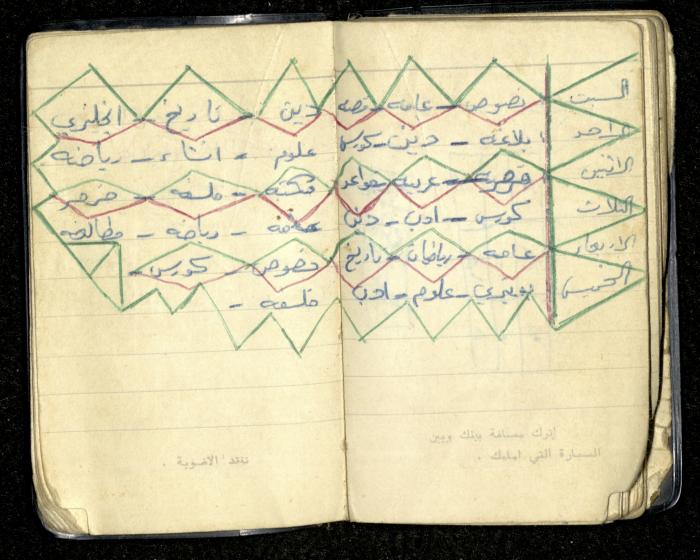 السبت نصوص - عامه - قصه دين - تاريخ - انجليزي
الاحد بلاغه - دين - كورس علوم - انشاء - رياضه
الاثنين عربيه - قواعد - فلسفه
الثلاث كورس - ادب - دين - رياضه - مطالعه
الاربعاء عامه - رياضات - تاريخ نصوص - كورس -
الخميس - علوم - ادب فلسفه -
إترك مسافة بينك وبين
السيارة التي امامك .
تفقد الاضوية .